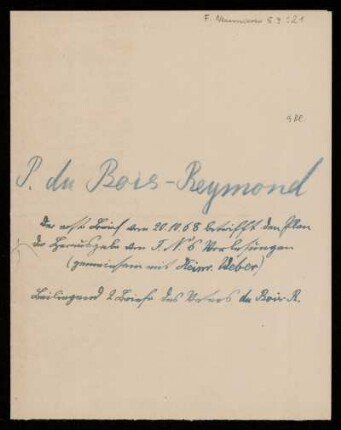 F. Neumann 53 : 21
9 Bl.
P. du Bois-Reymond
Der erste Brief vom 20.10.68 betrifft den Plan
der Herausgabe von F. N's Vorlesungen
(gemeinsam mit Heinr. Weber)
Beiliegend 2 Briefe des Vaters du Bois R.